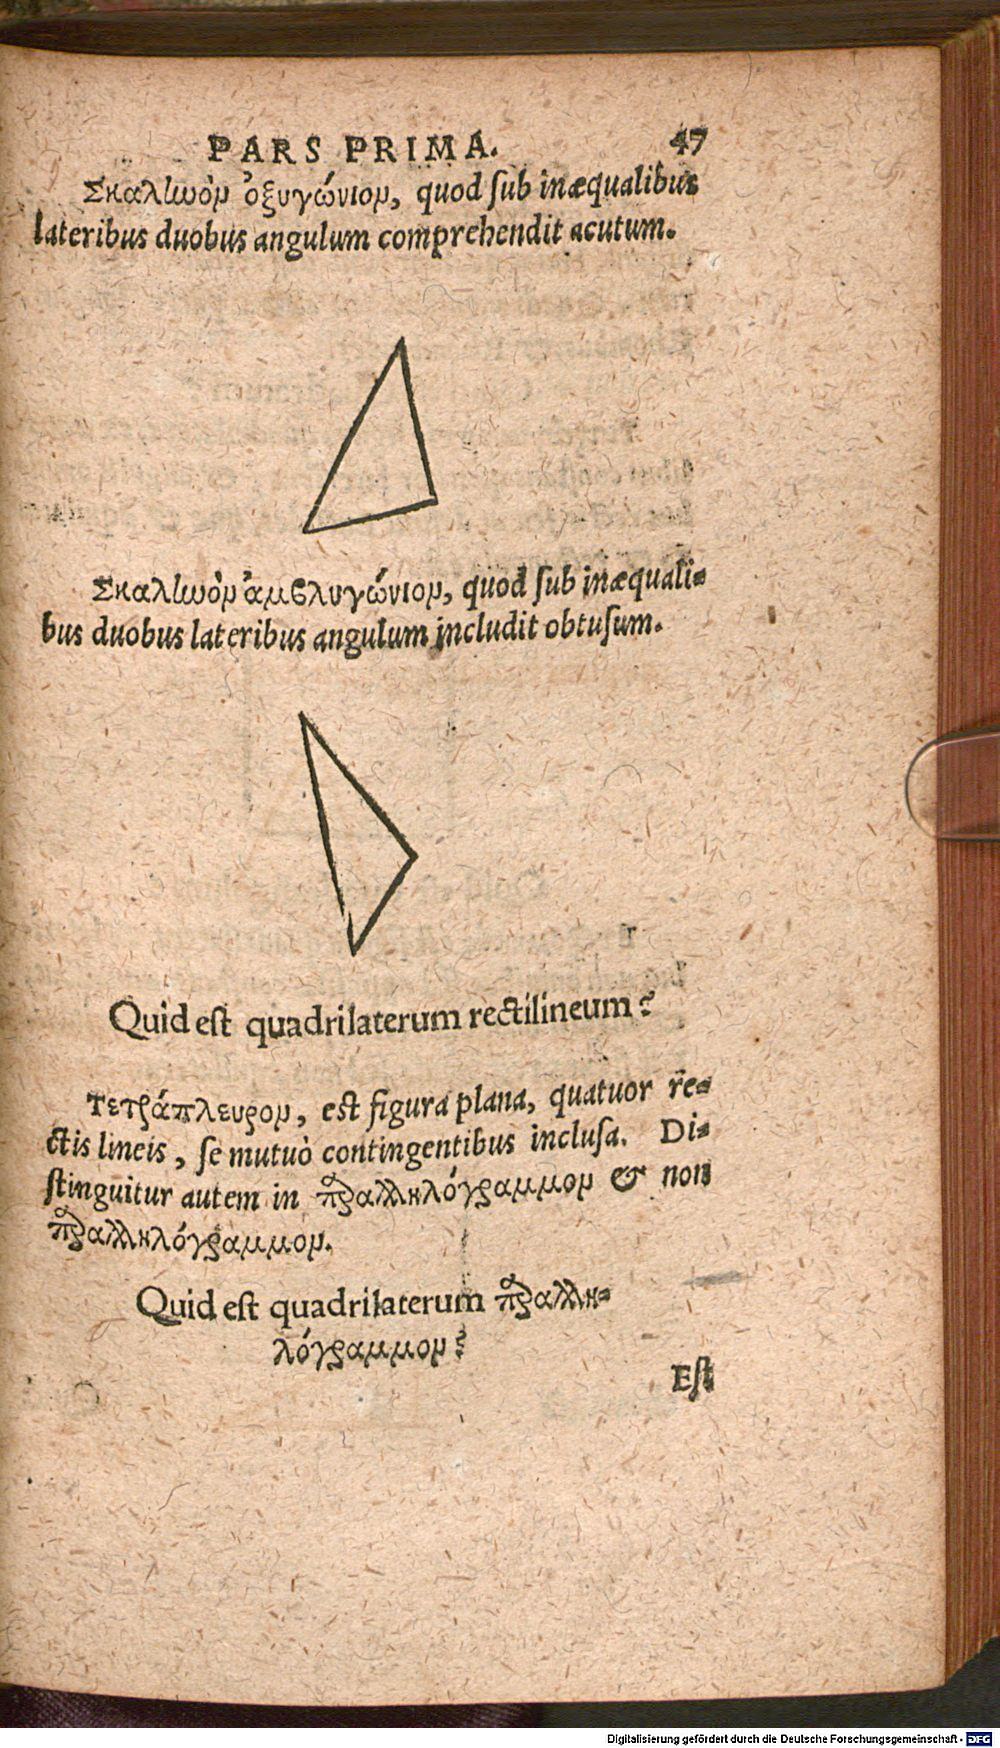 PARS PRIMA. 47
Σκαληνὸν ὀξυγώνιον, quod ſub inæqualibus
lateribus duobus angulum comprehendit acutum.
Σκαληνὸν ἀμβλυγώνιον, quod ſub inæquali-
bus duobus lateribus angulum includit obtuſum.
Quid eſt quadrilaterum rectilineum?
Τετράπλευρον, est figura plana, quatuor re-
ctis lineis, ſe mutuò contingentibus incluſa. Di-
ſtinguitur autem in παραλληλόγραμμον & non
παραλληλόγραμμον.
Quid eſt quadrilaterum παραλλη-
λόγραμμον?
Eſt
Digitalisierung gefördert durch die Deutsche Forschungsgemeinschaft - DFG